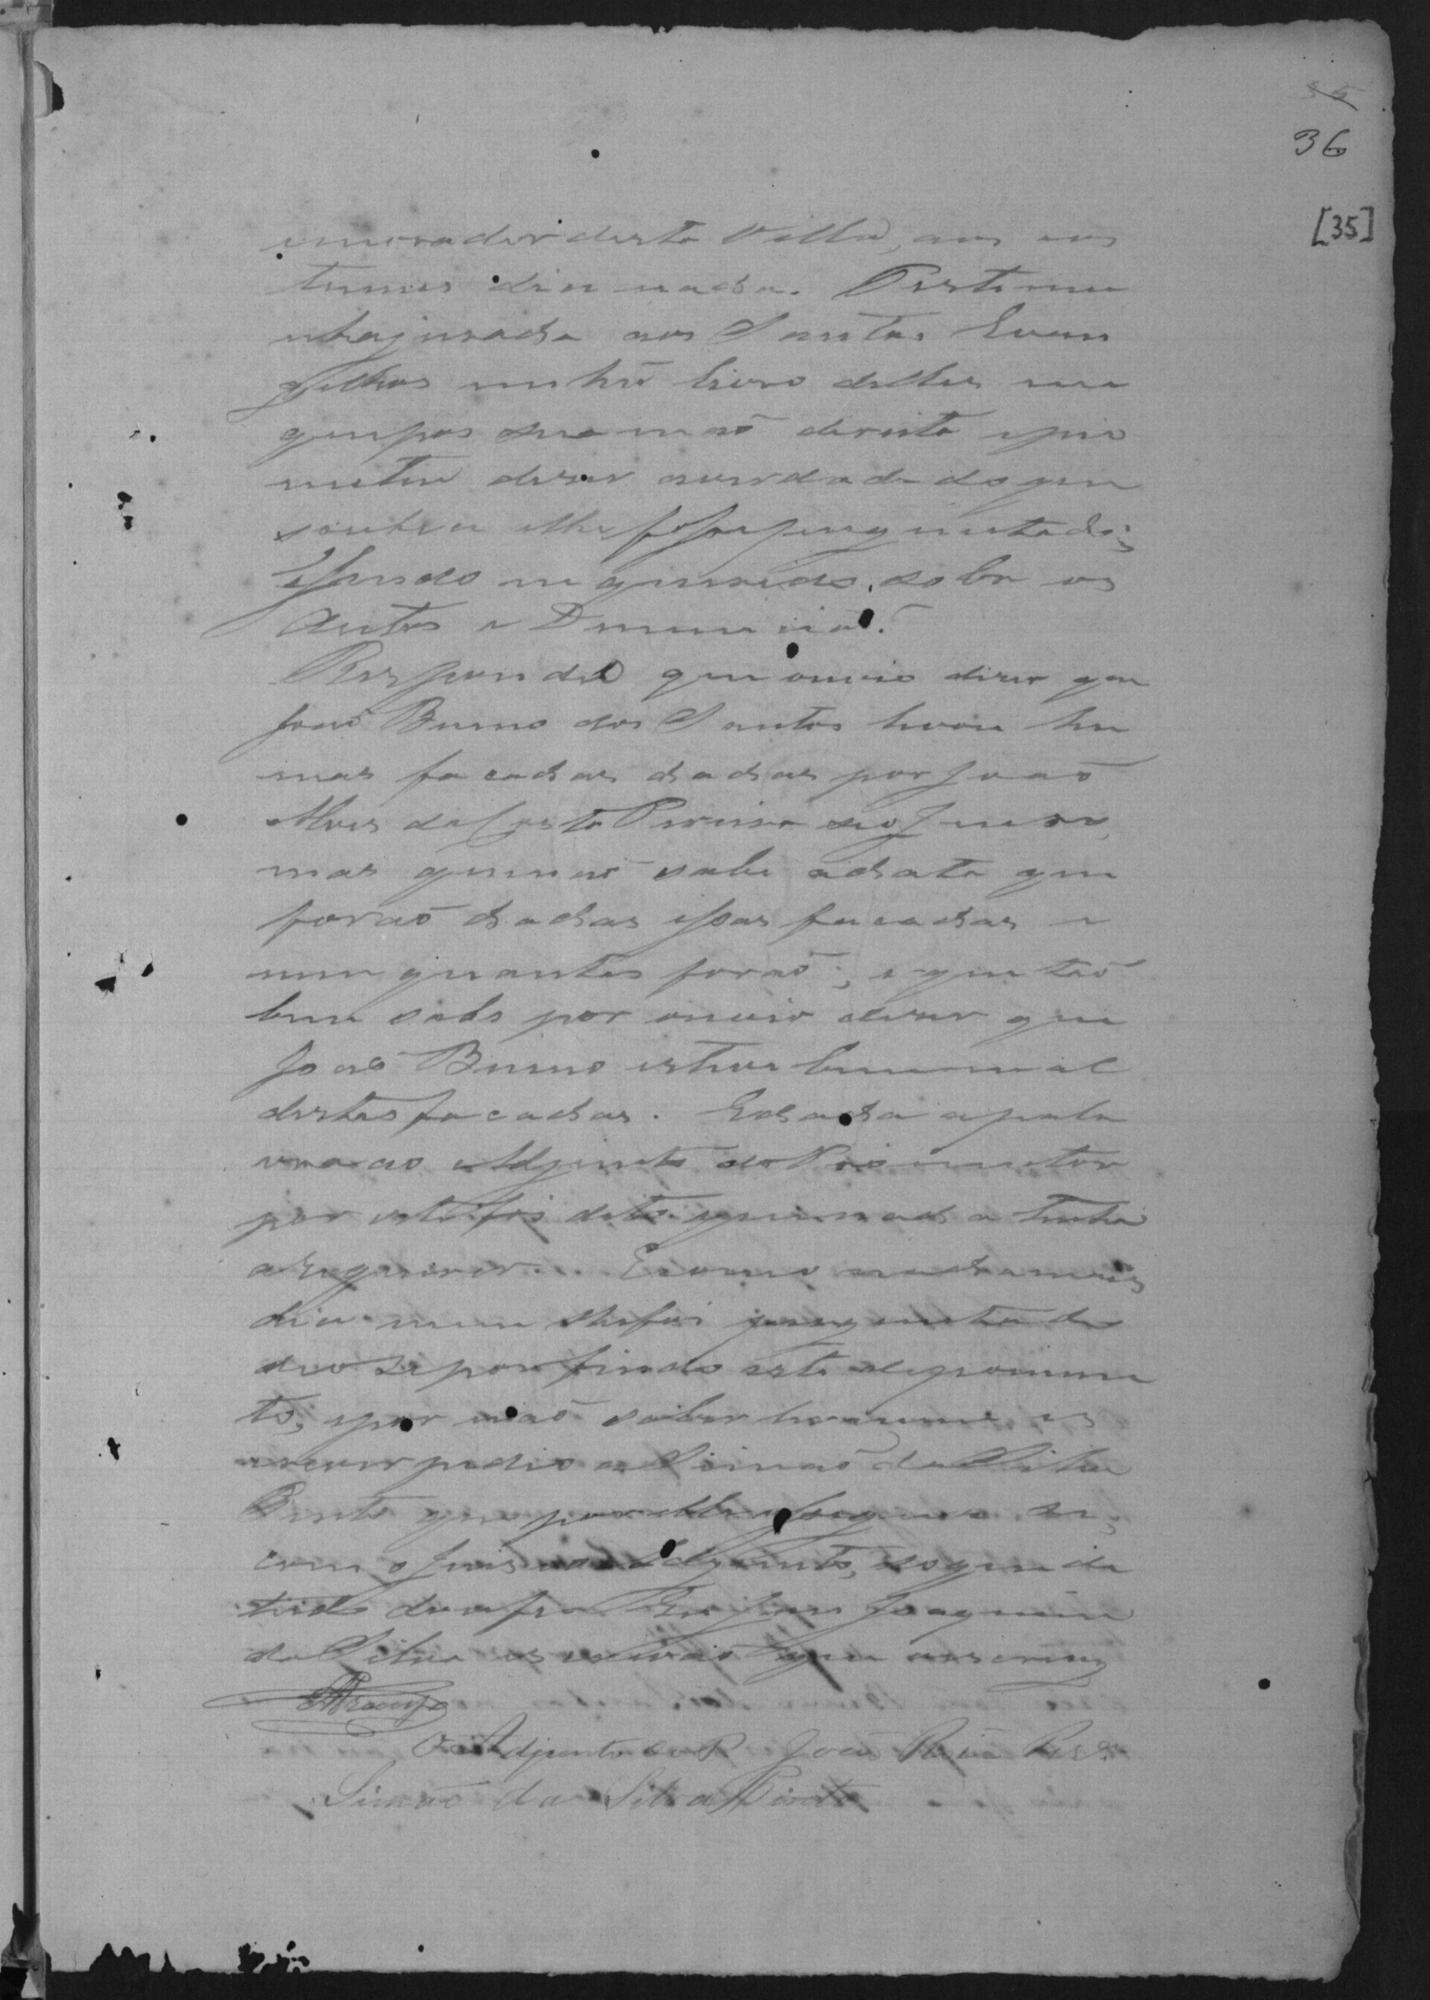 35
36
[35]
morador desta Villa, aos cos
tumes dice nada. Testemu
nha jurada aos Santos Evan
gelhos em hũ livro delles em
que pos sua mão dereita e pro
meteu diser averdade do que
soubece e lhe fosse perguntado;
E sendo inquerido, sobre os
Autos e Denuncia.
Respondeo que ouvio diser que
João Bueno dos Santos levou hu
mas facadas dadas por João
Alves da Costa Pereira
mas que não sabe a data que
forão dadas essas facadas e
nem quantas forão; e que tão
bem sabe por ouvir diser que
João Bueno esteve bem mal
destas facadas. E dada a pala
vra ao Adjunto do Promotor
por este foi dito que nada tinha
a requerer. E como nada mais
dice nem lhe foi perguntado
deo se por findo este depoimen
to, e por não saber ler nem es
crever pedio a Simão da Silva
Pinto que por elle assignace
com o Juis e o Adjunto, do que de
tudo dou fé. Eu José Joaquim
da Silva escrivão que escrevy
Araujo
O Adjunto do P. João
Simão da Silva Pinto